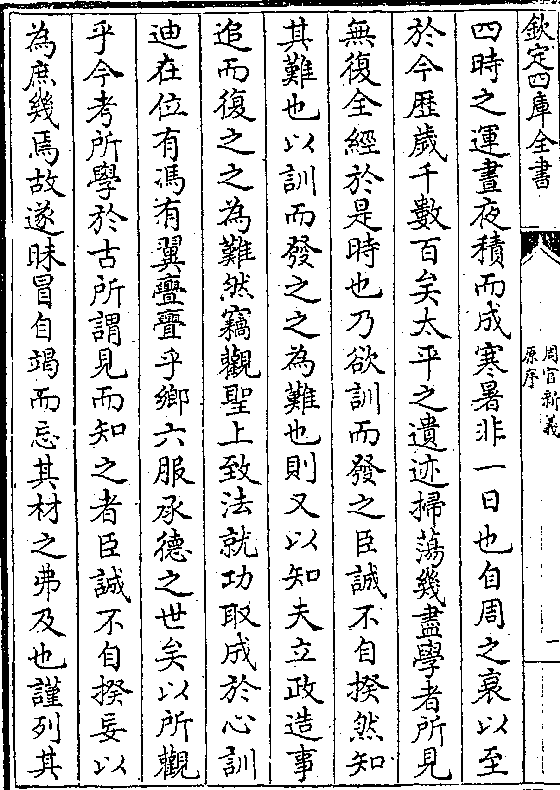 欽定四庫全書
周官新義
原序
一
四時之運晝夜積而成寒暑非一日也自周之衰以至
於今歴歲千數百矣太平之遺迹掃蕩幾盡學者所見
無復全經於是時也乃欲訓而發之臣誠不自揆然知
其難也以訓而發之之為難也則又以知夫立政造事
追而復之之為難然竊觀聖上致法就功取成於心訓
迪在位有馮有翼亹亹乎鄉六服承德之世矣以所觀
乎今考所學於古所謂見而知之者臣誠不自揆妄以
為庶幾焉故遂昧冒自竭而忘其材之弗及也謹列其